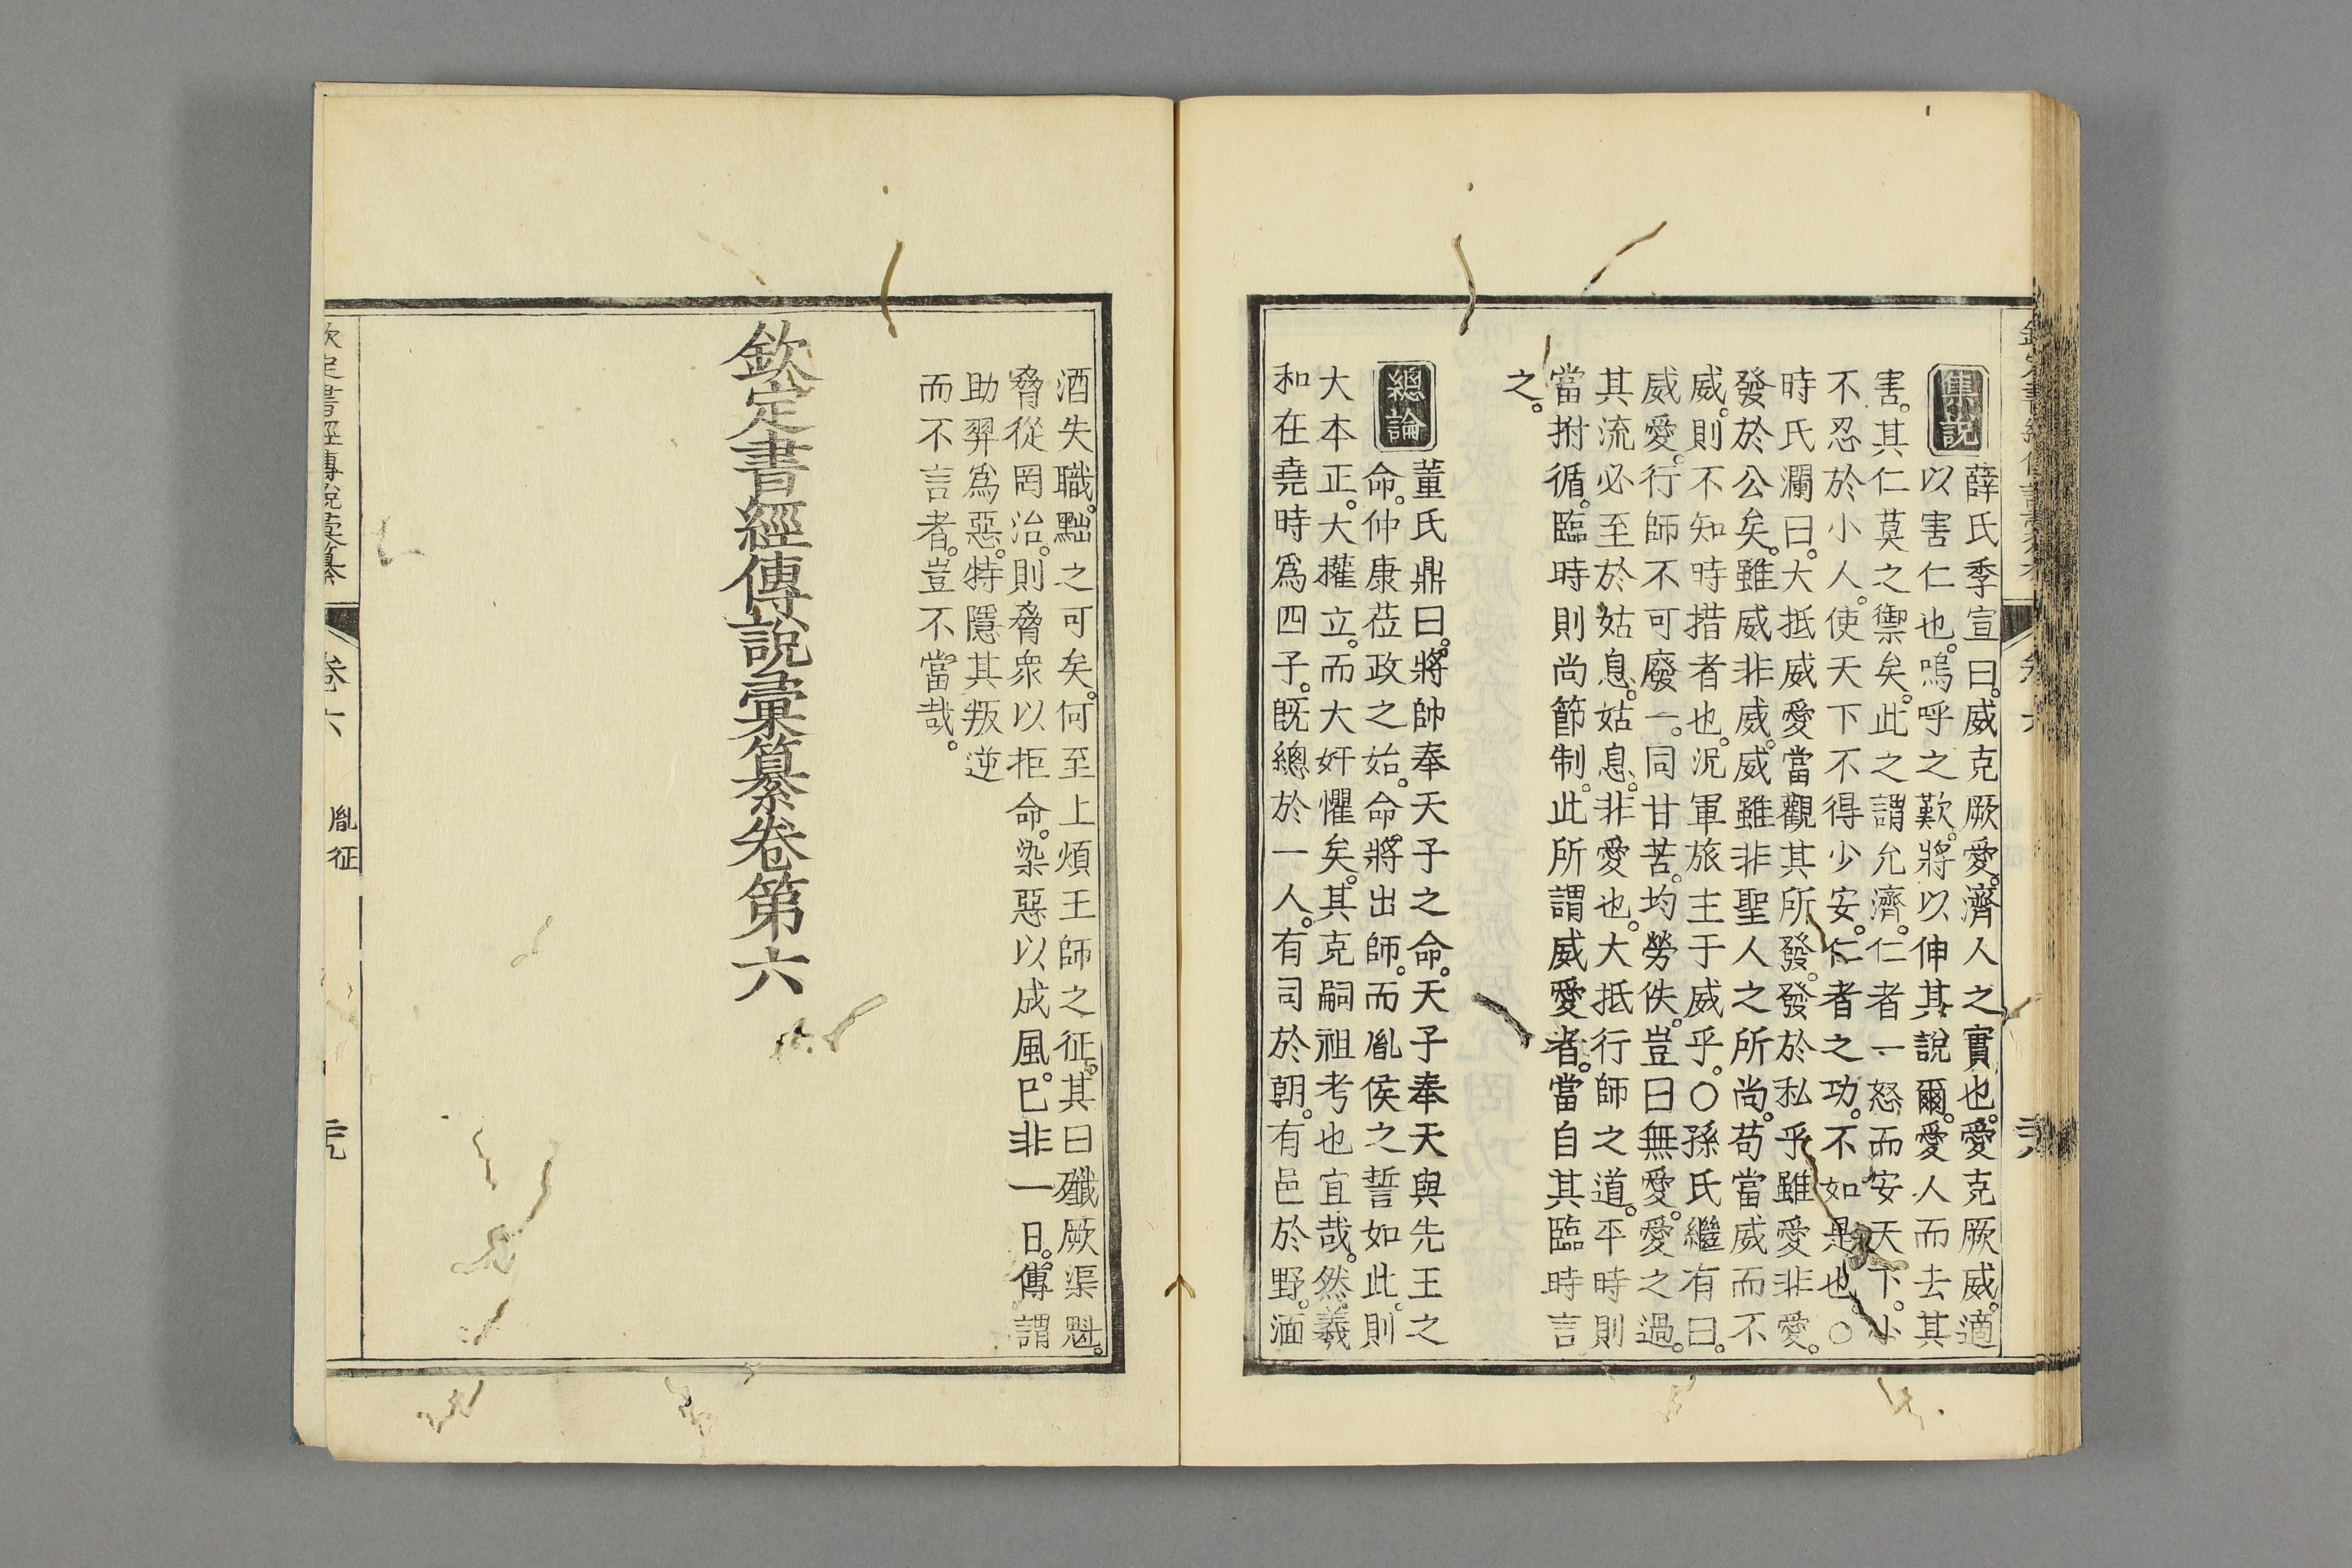 集說
薛氏季宣曰。威克厥愛。濟人之實也。愛克厥威。適
以害仁也。嗚呼之歎。將以伸其說爾。愛人而去其
害。其仁莫之禦矣。此之謂允濟。仁者一怒而安天下。小
不忍於小人。使天下不得少安。仁者之功。不如是也。○
時氏瀾曰。大抵威愛當觀其所發。發於私乎雖愛非愛。
發於公矣。雖威非威。威雖非聖人之所尚。苟當威而不
威。則不知時措者也。況軍旅主于威乎。○孫氏繼有曰。
威愛。行師不可廢一。同甘苦。均勞佚。豈曰無愛。愛之過。
其流必至於姑息。姑息。非愛也。大抵行師之道。平時則
當拊循。臨時則尚節制。此所謂威愛者。當自其臨時言
之。
總論
董氏鼎曰。將帥奉天子之命。天子奉天與先王之
命。仲康莅政之始。命將出師。而胤侯之誓如此。則
大本正。大權立。而大奸懼矣。其克嗣祖考也宜哉。然羲
和在堯時爲四子。旣總於一人。有司於朝。有邑於野。湎
酒失職。黜之可矣。何至上煩王師之征。其曰殲厥渠魁。
脅從罔治。則脅衆以拒命。染惡以成風。巳非一日。傳謂
助羿爲惡。特隱其叛逆
而不言者。豈不當哉。
欽定書經傳說彙纂卷第六
欽定書經傳說彙纂
卷六
胤征